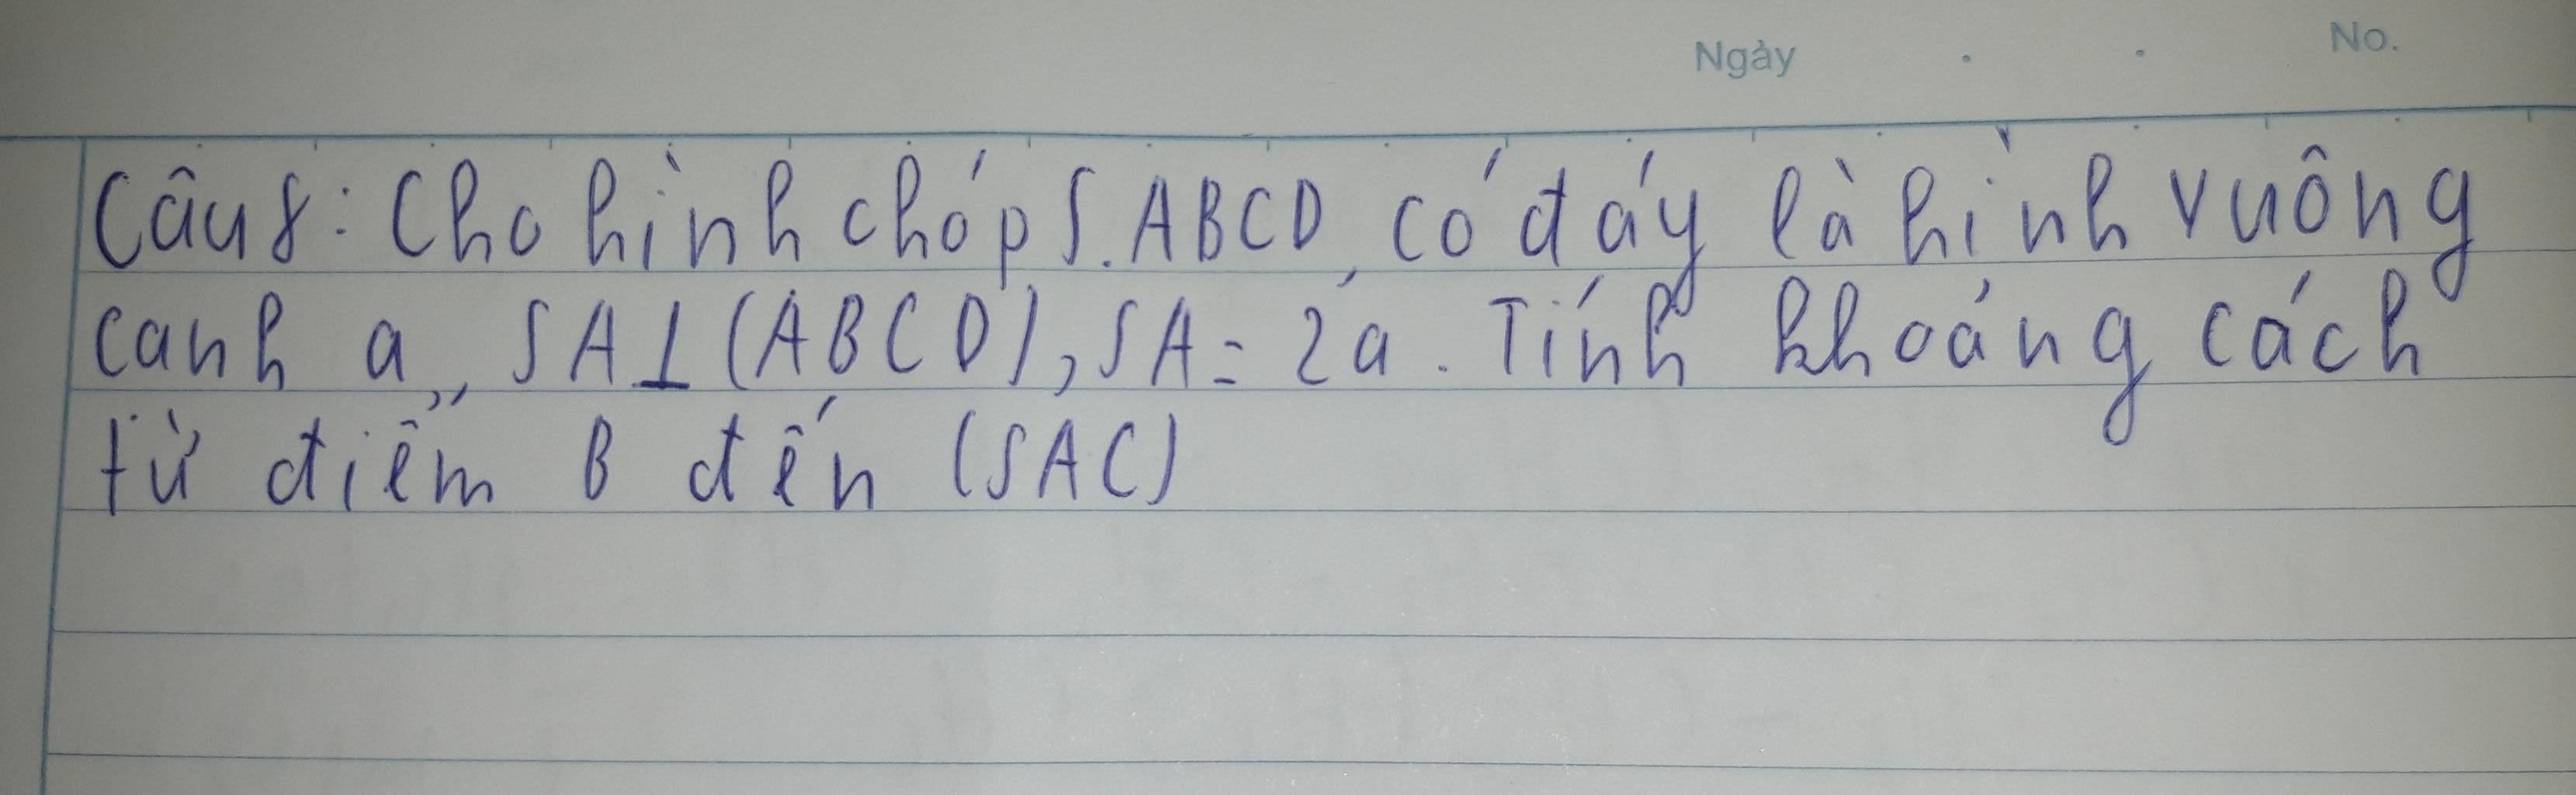 Ngày No.
Câu 8: Cho hình chóp S.ABCD, có đáy là hình vuông
canh a, SA⊥(ABCD), SA= 2a. Tính khoảng cách
từ điểm B đến (SAC)